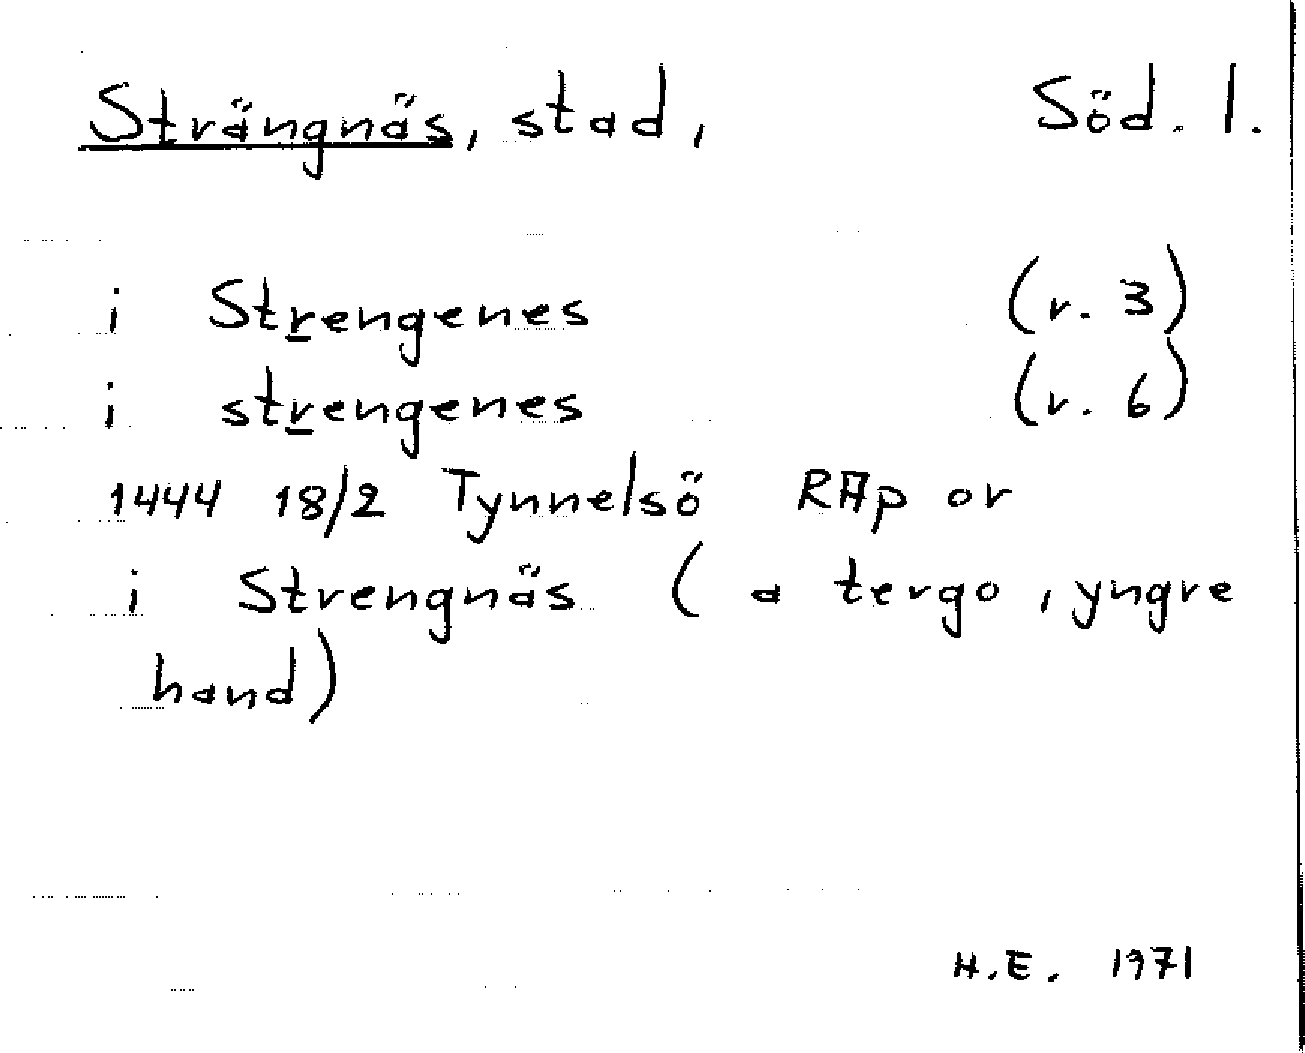 Strängnäs, stad, Söd. l.
i Strengenes (r. 3)
i strengenes (r. 6)
1444 18/2 Tynnelsö RAp or
i Strengnäs (a tergo, yngre
hand)
H.E. 1971